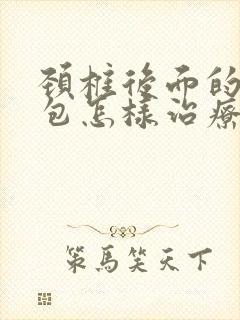 頚椎後面的
包怎樣治療
策馬笑天下